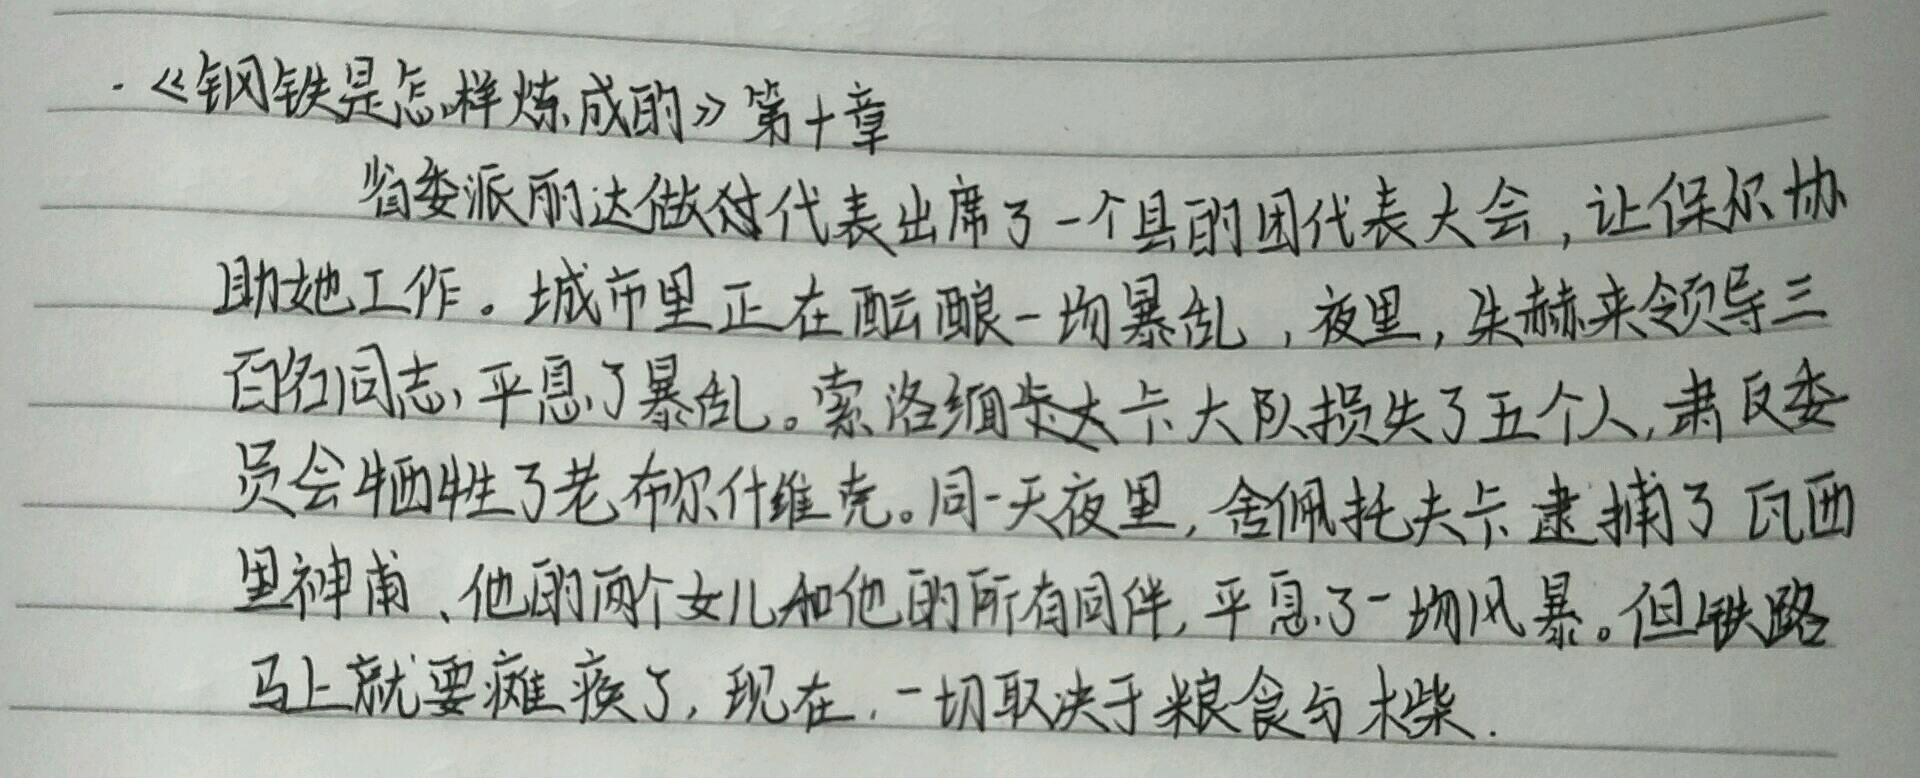 ·《钢铁是怎样炼成的》第十章
省委派丽达做代表出席了一个县的团代表大会,让保尔协
助她工作。城市里正在酝酿一场暴乱,夜里,朱赫来领导三
百名同志,平息了暴乱。索洛缅卡大队损失了五个人,肃反委
员会牺牲了老布尔什维克。同一天夜里,舍佩托夫卡逮捕了瓦西
里神甫、他的两个女儿和他的所有同伴,平息了一场风暴。但铁路
马上就要瘫痪了,现在,一切取决于粮食与木柴.